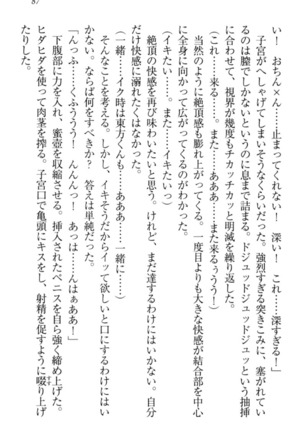 87
い！　おちん×ん……止まってくれない！　深い！　これ……深すぎる！」
子宮がへしゃげてしまいそうなくらいだった。強烈すぎる突きこみに、塞がれてい
るのは膣でしかないというのに息まで詰まる。ドジュッドジュッドジュッという抽挿
に合わせて、視界が幾度もチカッチカッと明滅を繰り返した。
（これ……来る……。また……ああぁ……また来るぅうう！）
当然のように絶頂感も膨れ上がってくる。一度目よりも大きな快感が結合部を中心
に全身に向かって広がってくるのがわかった。
（イキたい……。また……イキたいっ）
絶頂の快感を再び味わいたいと思う。けれど、まだ達するわけにはいかない。自分
だけ快感に溺れたくはなかった。
（一緒……イク時は東方くんも……ああぁ……一緒に……）
そんなことを考える。しかし、イキそうだからイッて欲しいと口にするわけにはい
かない。ならば何をすべきか？　答えは単純だった。
「んっふ……くふううう！　んんんっ！　あっは……んはぁああ！」
下腹部に力を入れ、蜜壺を収縮させる。挿入されたペニスを自ら強く締め上げた。
ヒダヒダを使って肉茎を搾る。子宮口で亀頭にキスをし、射精を促すように啜り上げ
たりした。